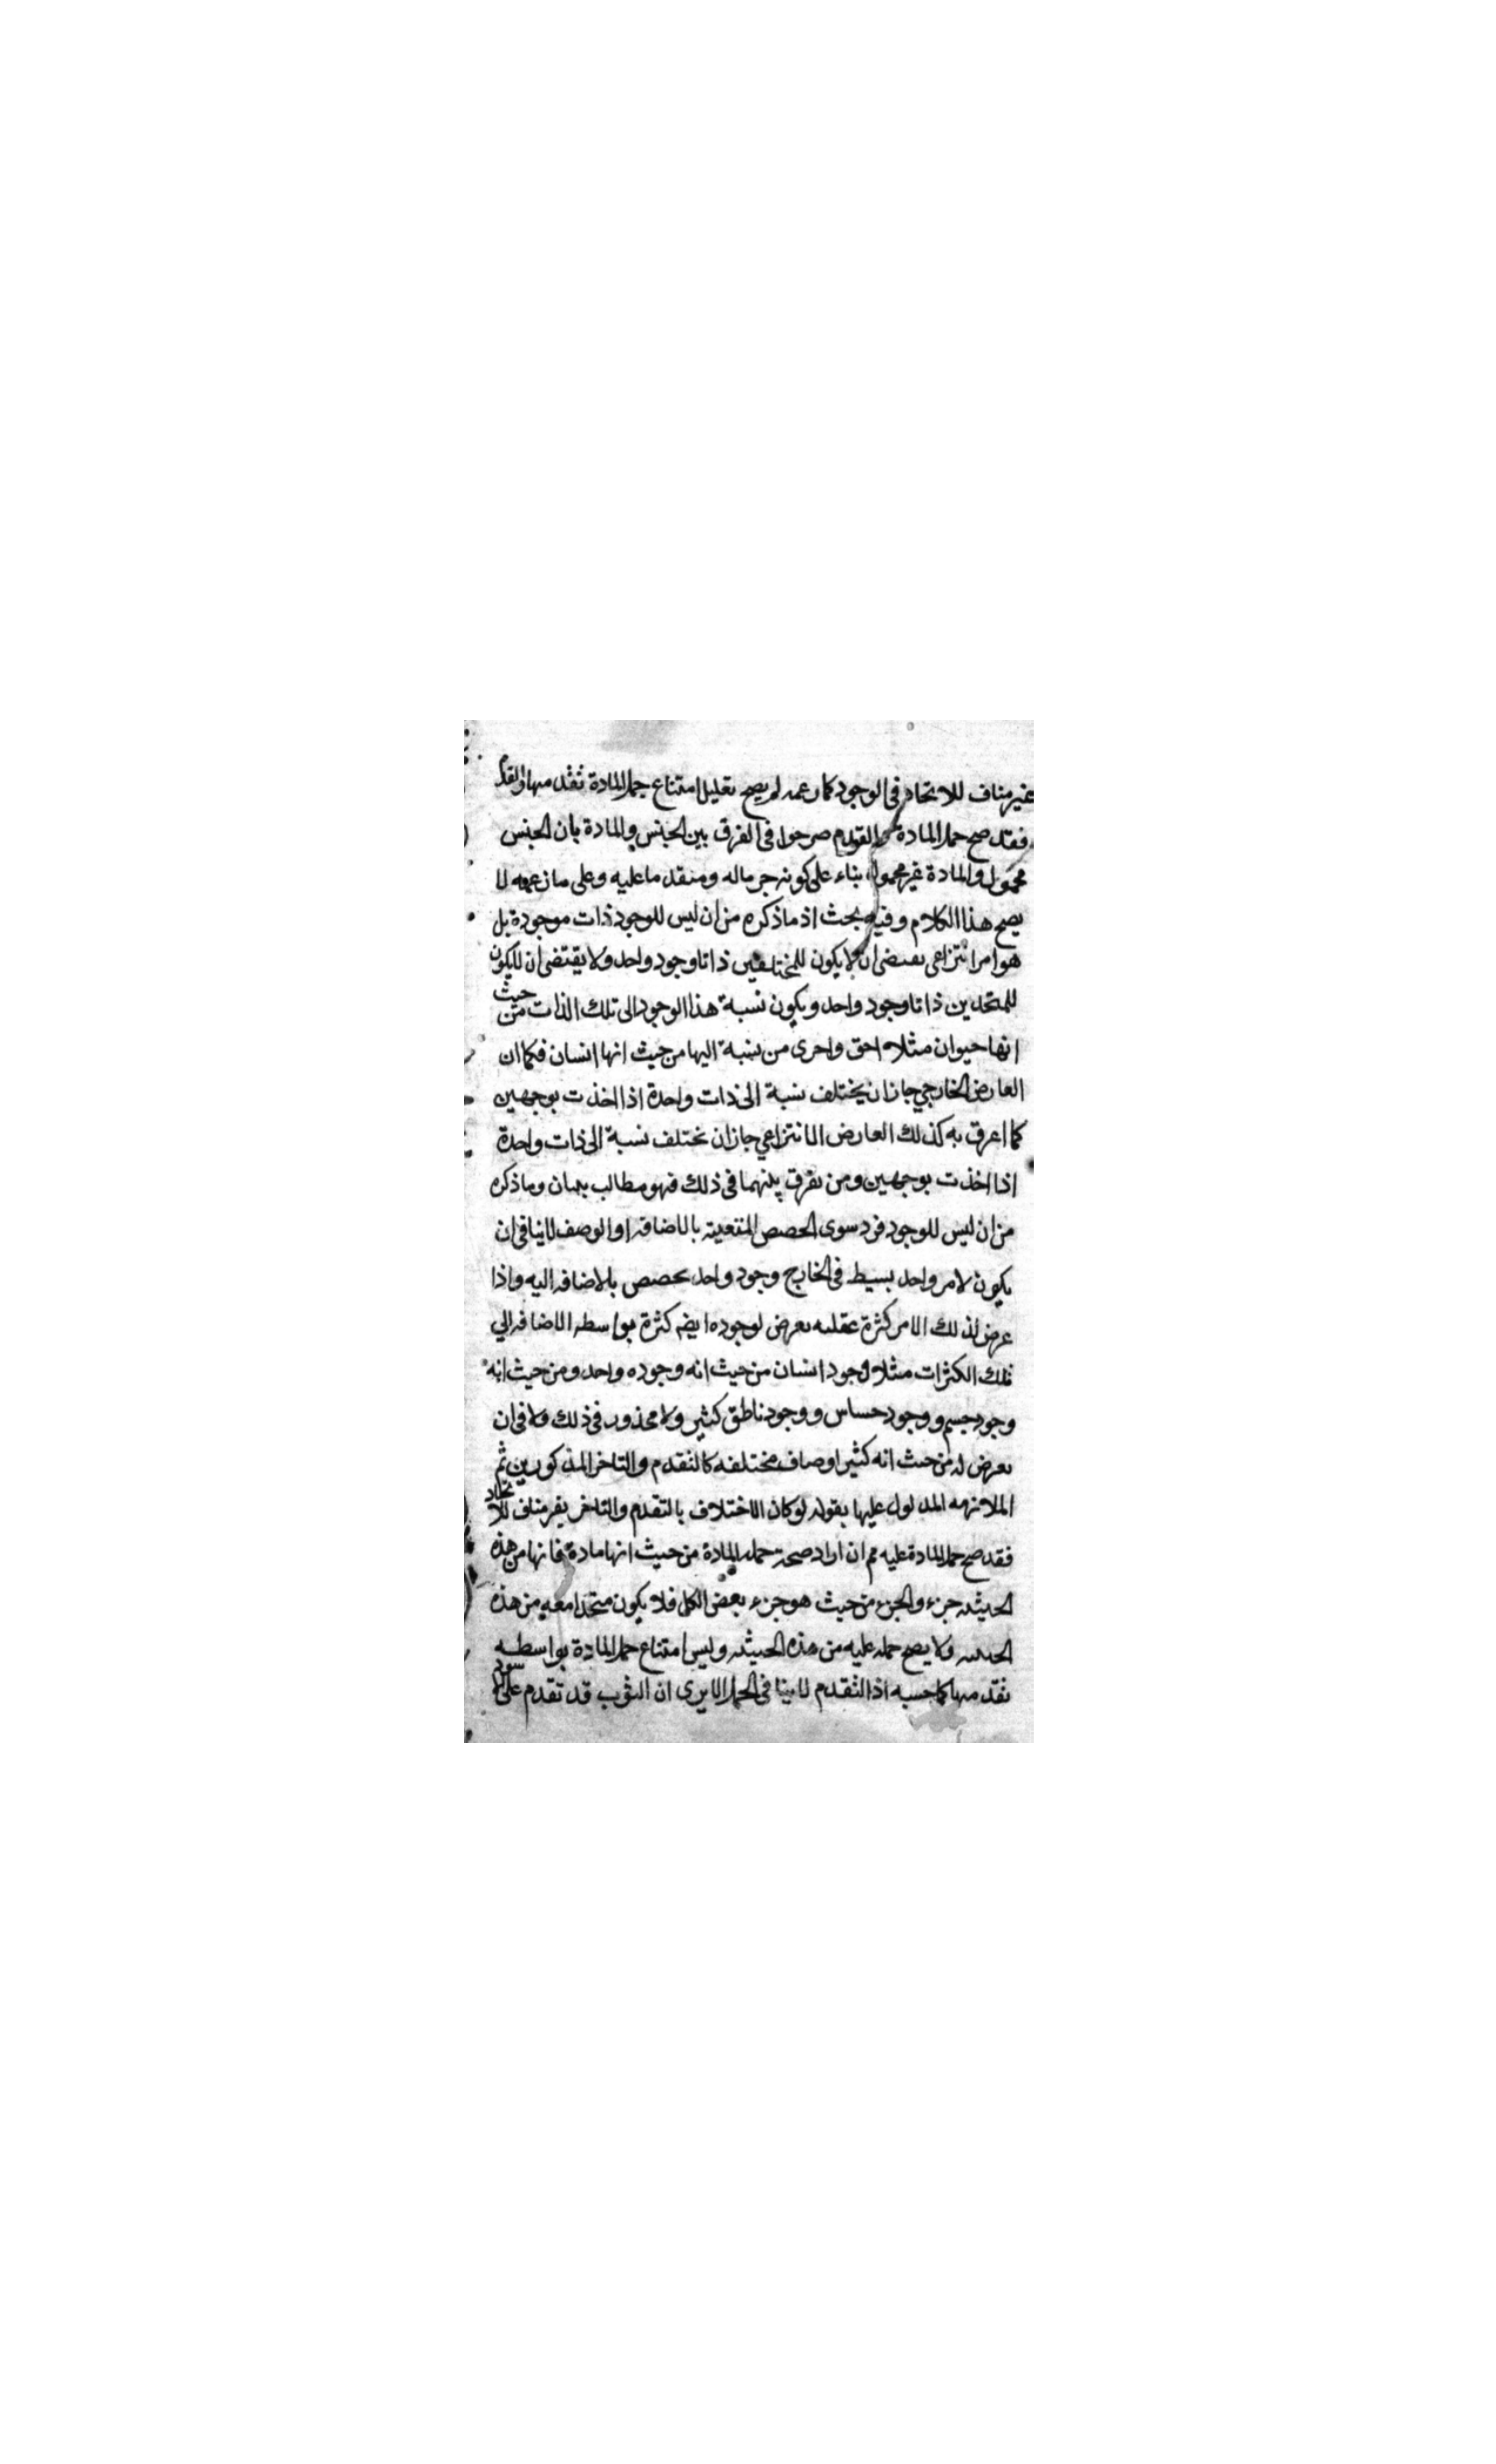 غير مناف للاتحاد في الوجود كما زعمه لم يصح تعليل امتناع حمل المادة بتقدمها والتقدم
فقد صح حمل المادة والقوم صرحوا في الفرق بين الجنس والمادة بان الجنس
محمول والمادة غير محمول بناء على كونه جزء ماله ومتقدما عليه وعلى ما زعمه لا
يصح هذا الكلام وفيه بحث اذ ما ذكره من ان ليس للوجود ذات موجودة بل
هو امر انتزاعي يقتضي ان لا يكون للمختلفين ذاتا وجود واحد ولا يقتضي ان لا يكون
للمتحدين ذاتا وجود واحد ويكون نسبة هذا الوجود الى تلك الذات من حيث
انها حيوان مثلا احق واحرى من نسبة اليها من حيث انها انسان فكما ان
العارض الخارجي جاز ان يختلف نسبة الى ذات واحدة اذا اخذت بوجهين
كما اعرف به كذلك العارض الانتزاعي جاز ان يختلف نسبة الى ذات واحدة
اذا اخذت بوجهين ومن يفرق بينهما في ذلك فهو مطالب ببيان وما ذكره
من ان ليس للوجود فرد سوى الحصص المتعينة بالاضافة او الوصف لا ينافي ان
يكون لامر واحد بسيط في الخارج وجود واحد تحصص بالاضافه اليه واذا
عرض لذلك الامر كثرة عقليه يعرض لوجوده ايضم كثرة بواسطه الاضافه الي
تلك الكثرات مثلا وجود انسان من حيث انه وجوده واحد ومن حيث انه
وجود جسم ووجود حساس ووجود ناطق كثير ولا محذور في ذلك ولا في ان
يعرض له من حيث انه كثير اوصاف مختلفه كالتقدم والتاخر المذكورين ثم
الملازمه المدلول عليها بقوله لو كان الاختلاف بالتقدم والتاخر غير مناف للاتحاد
فقد صح حمل المادة عليه مم ان اراد صحة حمل المادة من حيث انها مادة فانها من هذه
الحيثيه جزء والجزء من حيث هو جزء بعض الكل فلا يكون متحدا معه من هذه
الحيثيه ولا يصح حمله عليه من هذه الحيثيه وليس امتناع حمل المادة بواسطه
تقدمها كما حسبه اذ التقدم لا ينافي الحمل الا يرى ان الثوب قد تقدم على